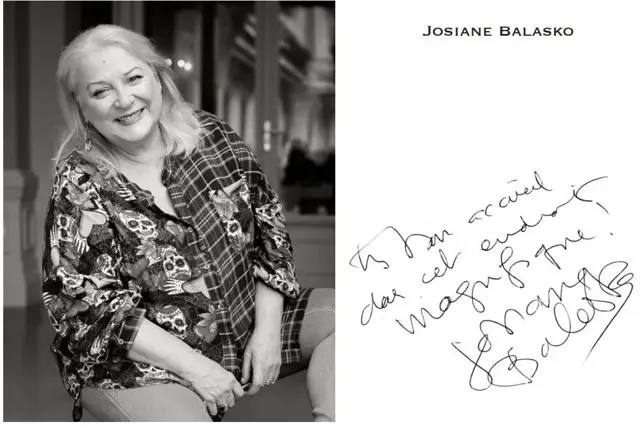 JOSIANE BALASKO
Très bon accueil
dans cet endroit
magnifique !
Josiane
Balasko